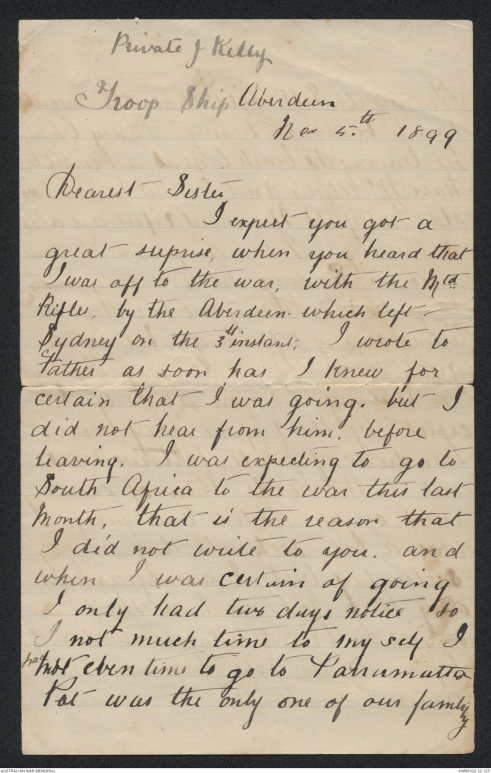 Private J Kelly
Troop Ship Aberdeen
Nov 5.th 1899
Dearest Sister
I expect you got a
great suprise, when you heard that
I was off to the war, with the Mtd
Rifles, by the Aberdeen which left
Sydney on the 3rd instant, I wrote to
Father as soon has I knew for
certain that I was going. but I
did not hear from him. before
leaving. I was expecting to go to
South Africa to the war this last
Month, that is the reason that
I did not write to you. and
when I was certain of going
I only had two days notice so
I not much time to my self I
had not even time to go to Parramatta
Pat was the only one of our family
AUSTRALIAN WAR MEMORIAL